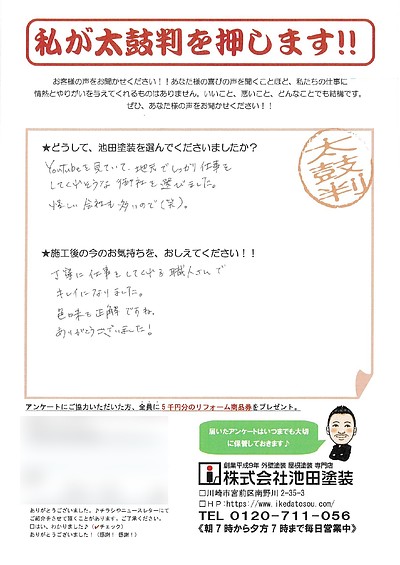 私が太鼓判を押します!!
お客様の声をお聞かせください！！あなた様の喜びの声を聞くことほど、私たちの仕事に
情熱とやりがいを与えてくれるものはありません。いいこと、悪いこと、どんなことでも結構です。
ぜひ、あなた様の声をお聞かせください！！
★どうして、池田塗装を選んでくださいましたか？
太鼓判
Youtubeを見ていて、地元でしっかり仕事を
してくれそうな御社を選びました。
怪しい会社も多いので（笑）。
★施工後の今のお気持ちを、おしえてください！！
丁寧に仕事をしてくれる職人さんで
キレイになりました。
色味も正解ですね。
ありがとうございました！
アンケートにご協力いただいた方、全員に５千円分のリフォーム商品券をプレゼント。
届いたアンケートはいつまでも大切
に保管しておきます♪
創業平成9年 外壁塗装 屋根塗装 専門店
株式会社池田塗装
□川崎市宮前区南野川2-35-3
□ＨＰ:https://www.ikedatosou.com/
TEL 0120-711-056
《朝７時から夕方７時まで毎日営業中》
ありがとうございました。♪チラシやニュースレターにて
ご紹介をさせて頂くことがあります。ご了承ください。
□はい、わかりました♪（✓チェック）
ありがとうございました！（感謝！感謝！）